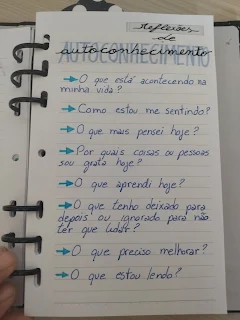 Reflexões
de
autoconhecimento
AUTOCONHECIMENTO
O que está acontecendo na
minha vida?
Como estou me sentindo?
O que mais pensei hoje?
Por quais coisas ou pessoas
sou grata hoje?
O que aprendi hoje?
O que tenho deixado para
depois ou ignorado para não
ter que lidar?
O que preciso melhorar?
O que estou lendo?